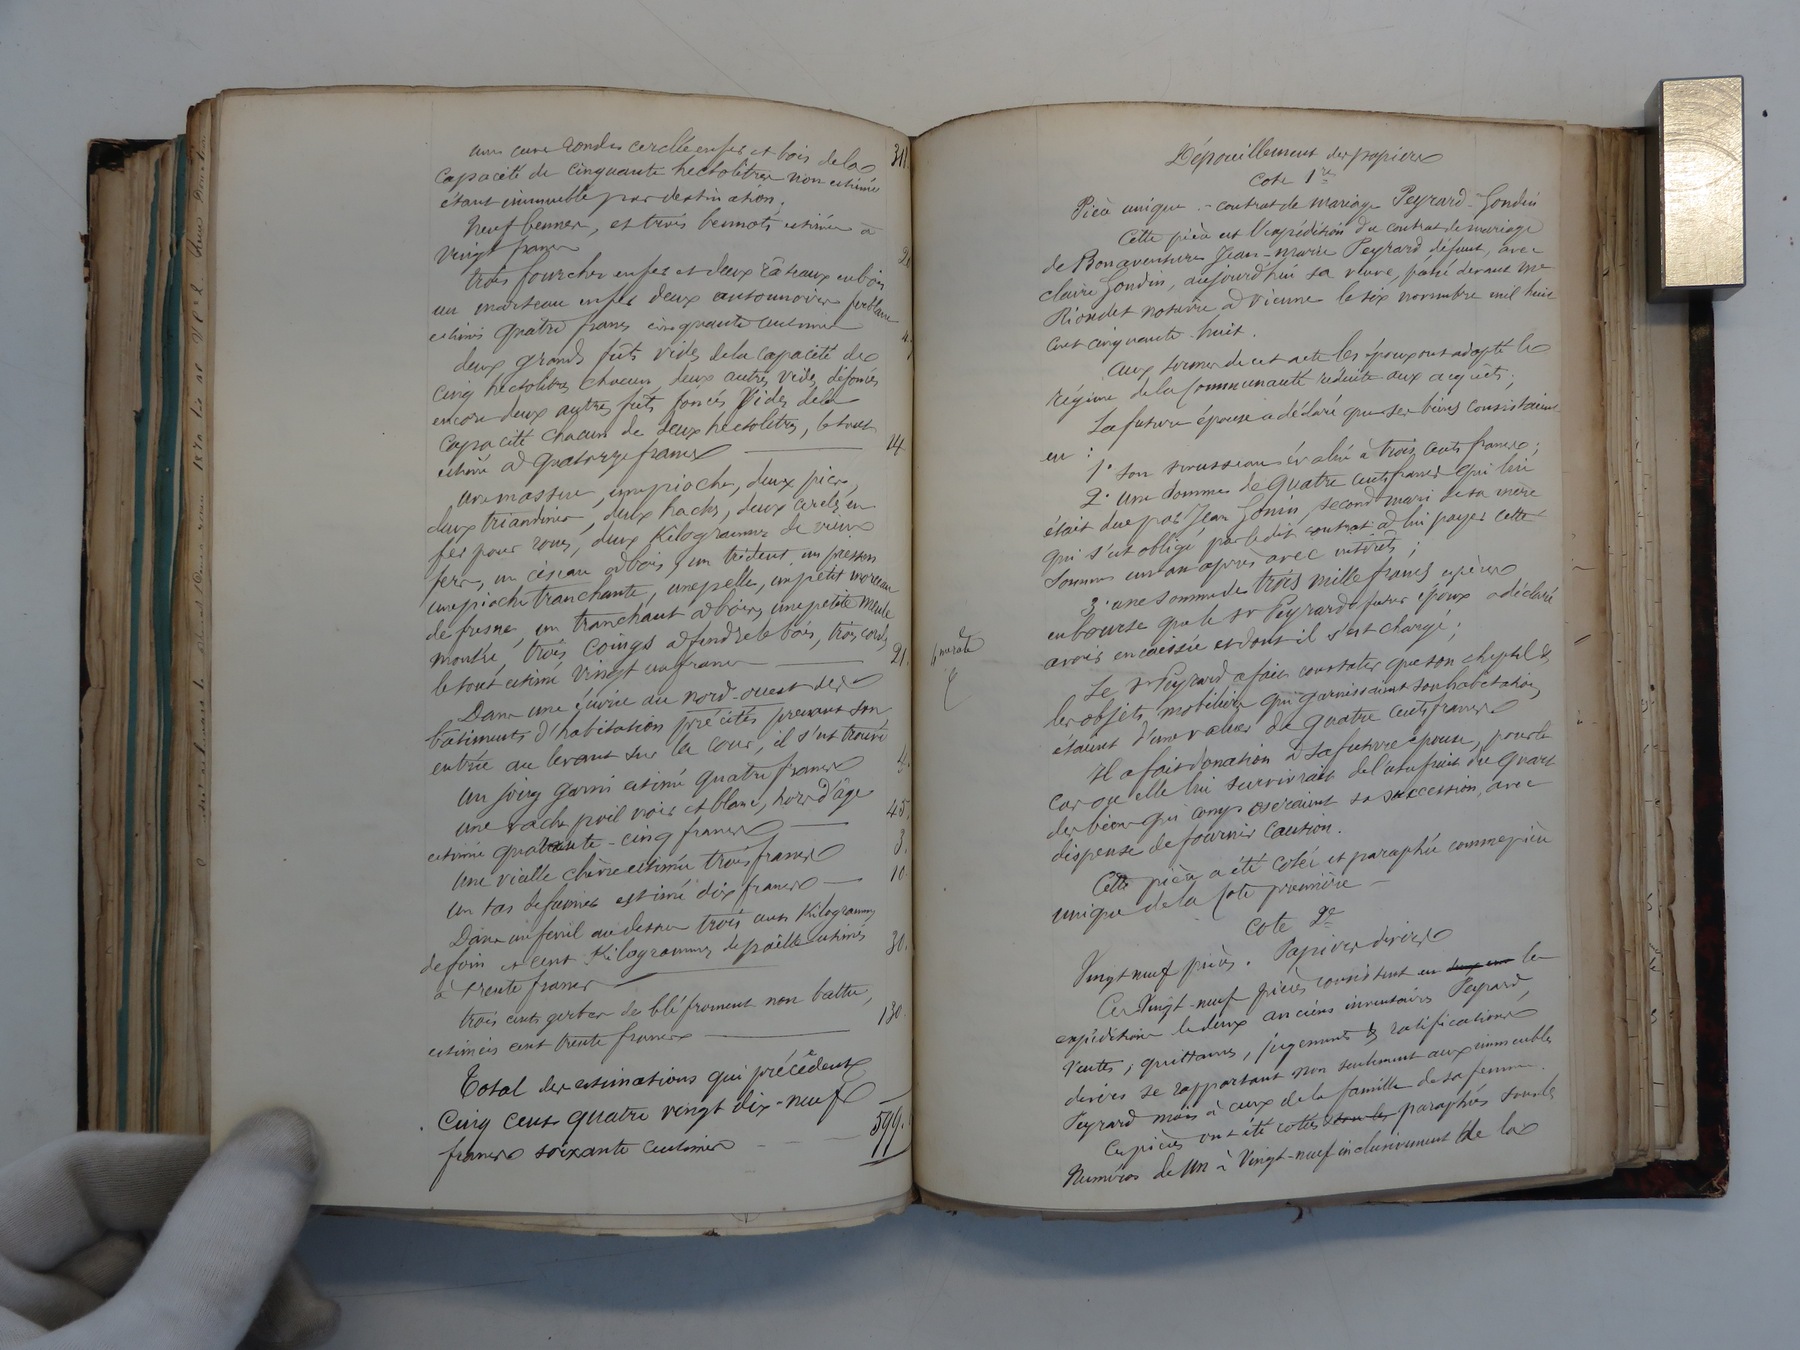 une cuve ronde cerclée en fer et bois de la 311
capacité de cinquante hectolitres non estimée
étant immeuble par destination.
Neuf bennes, et trois bennots estimés à
vingt francs 2
trois fourches en fer et deux râteaux en bois
un marteau en fer deux entonnoirs ferblanc
estimés quatre francs cinquante centimes 4
deux grands fûts vides de la capacité de
cinq hectolitres chacun, deux autres vides, défoncés
encore deux autres fûts foncés vides de la
capacité chacun de deux hectolitres, le tout
estimé à quatorze francs 14
une massue, une pioche, deux pics,
deux triandines, deux haches, deux cercles en
fer pour roues, deux Kilogrammes de vieux
fers, un ciseau à bois, un trident, un presson
une pioche tranchante, une pelle, un petit morceau
de fresne, un tranchant à bois, une petite meule
montée, trois coings à fendre le bois, trois cordes
le tout estimé vingt un francs 21.
Dans une écurie au nord-ouest des
bâtiments d'habitation précités prenant son
entrée au levant sur la cour, il s'est trouvé
un joug garni estimé quatre francs 4.
une vache poil noir et blanc, hors d'âge
estimée quarante-cinq francs 45.
Une vielle chèvre estimée trois francs 3.
Un tas de fumier estimé dix francs 10
Dans un fenil au dessus trois cents Kilogrammes
de foin et cent Kilogrammes de paille estimés 30.
à trente francs
trois cents gerbes de blé froment non battu,
estimées cent trente francs 130.
Total des estimations qui précèdent
Cinq cent quatre vingt dix-neuf
francs soixante centimes 599.
Dépouillement des papiers
Cote 1re
Pièce unique. - contrat de mariage Peyrard-Gondin
Cette pièce est l'expédition du contrat de mariage
de Bonaventure Jean-Marie Peyrard, défunt, avec
Claire Gondin, aujourd'hui sa veuve, passé devant Me
Riondet notaire à Vienne le six novembre mil huit
cent cinquante-huit.
Aux termes de cet acte les époux ont adopté le
régime de la Communauté réduite aux acquêts;
La future épouse a déclaré que ses biens consistaient
en :
1° son trousseau évalué à trois cents francs;
2° une somme de quatre cents francs qui lui
était due par Jean Gonin, second mari de sa mère
qui s'est obligé par le dit contrat à lui payer cette
somme un an après avec intérêts;
3° une somme de trois mille francs espèces
en bourse que le sr Peyrard futur époux a déclaré
avoir encaissée et dont il s'est chargé;
Le sr Peyrard a fait constater que son cheptel &
les objets mobiliers qui garnissaient son habitation,
étaient d'une valeur de quatre cents francs
Il a fait donation à sa future épouse, pour le
cas où elle lui survivrait de l'usufruit du quart
des biens qui composeraient sa succession, avec
dispense de fournir caution.
Cette pièce a été cotée et paraphée comme pièce
unique de la Cote première
Cote 2e
Vingt neuf pièces. Papiers divers
Ces Vingt-neuf pièces consistent en les
expéditions de deux anciens inventaires Peyrard,
Ventes, quittances, jugements & ratifications
divers se rapportant non seulement aux immeubles
Peyrard mais à ceux de la famille de sa femme.
Ces pièces ont été cotées paraphées sous les
Numéros de Un à Vingt-neuf inclusivement de la